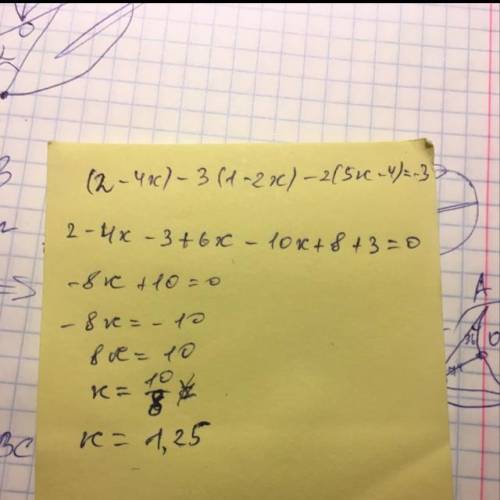 (2-4x)-3(1-2x)-2(5x-4)=-3
2-4x-3+6x-10x+8+3=0
-8x+10=0
-8x=-10
8x=10
x=10/8
x=1,25
A
BC